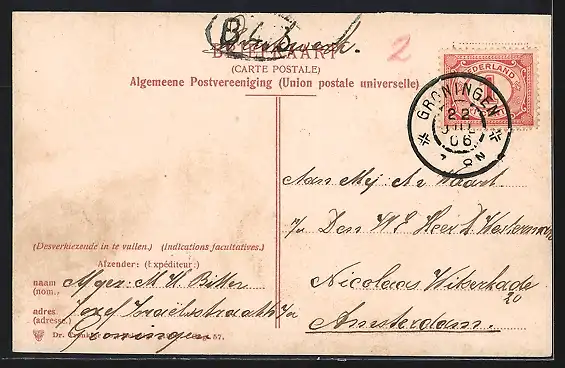 B
Drukwerk.
BRIEFKAART
(CARTE POSTALE)
Algemeene Postvereeniging (Union postale universelle)
2
NEDERLAND
GRONINGEN
22
06
7 8N
Aan Mej: A v Waart
p/a Den W E Heer
Nicolaas Witsenkade
20
Amsterdam.
(Desverkiezende in te vullen.) (Indications facultatives.)
Afzender: (Expéditeur:)
naam
(nom.)
M. W. Bitter
adres
(adresse.)
Jozef Israëlsstraat
Groningen
Dr. Trenkler
57.